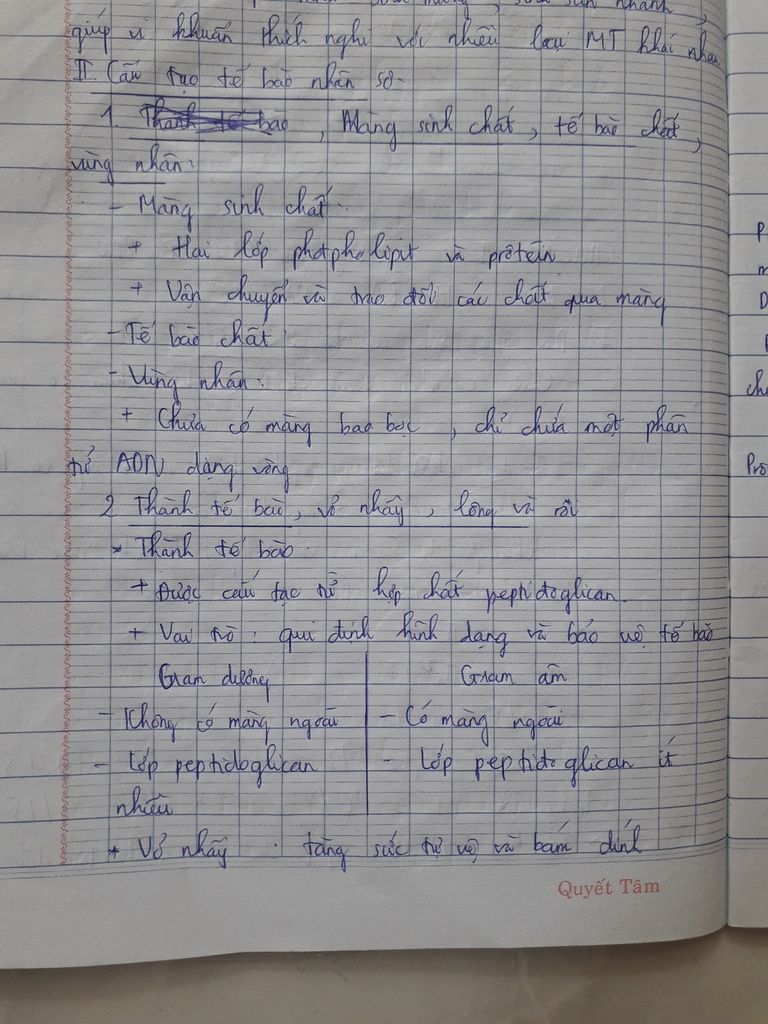 giúp vi khuẩn thích nghi với nhiều loại MT khác nhau
II. Cấu tạo tế bào nhân sơ.
1. Thành tế bào, Màng sinh chất, tế bào chất,
vùng nhân:
- Màng sinh chất:
+ Hai lớp photpholipit và prôtêin
+ Vận chuyển và trao đổi các chất qua màng
- Tế bào chất:
- Vùng nhân:
+ Chưa có màng bao bọc, chỉ chứa một phân
tử ADN dạng vòng
2 Thành tế bào, vỏ nhầy, lông và rôi
* Thành tế bào.
+ Được cấu tạo từ hợp chất peptidoglican.
+ Vai trò: qui định hình dạng và bảo vệ tế bào
Gram dương Gram âm
- Không có màng ngoài - Có màng ngoài
- Lớp peptidoglican - Lớp peptidoglican ít
nhiều
+ Vỏ nhầy: tăng sức tự vệ và bám dính
Quyết Tâm
P
m
D
ch
Prô